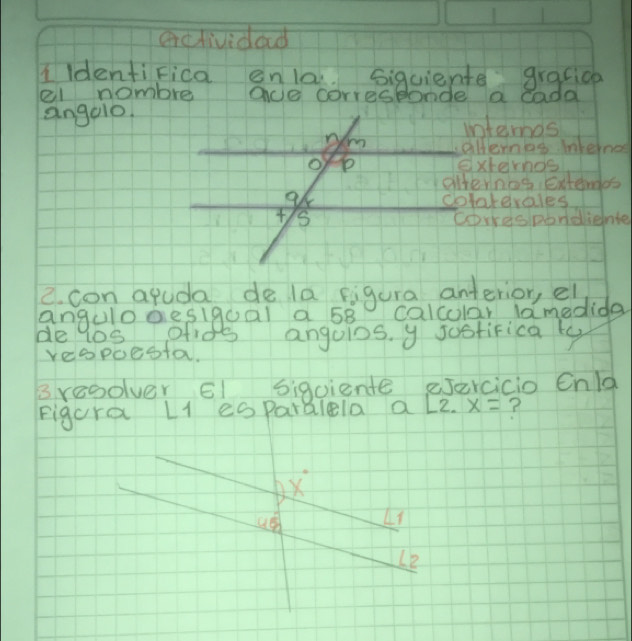 Actividad
1 Identifica en la siguiente grafica
el nombre que corresponde a cada
angulo.
internos
n m
alternos internos
o p
Externos
alternos Externos
q r
colaterales
t s
correspondiente
2. con ayuda de la figura anterior, el
angulo o es igual a 58 calcular la medida
de los angulos. y justifica
respuesta.
3 resolver El siguiente ejercicio En la
Figura L1 es paralela a L2. X = ?
X°
L1
L2